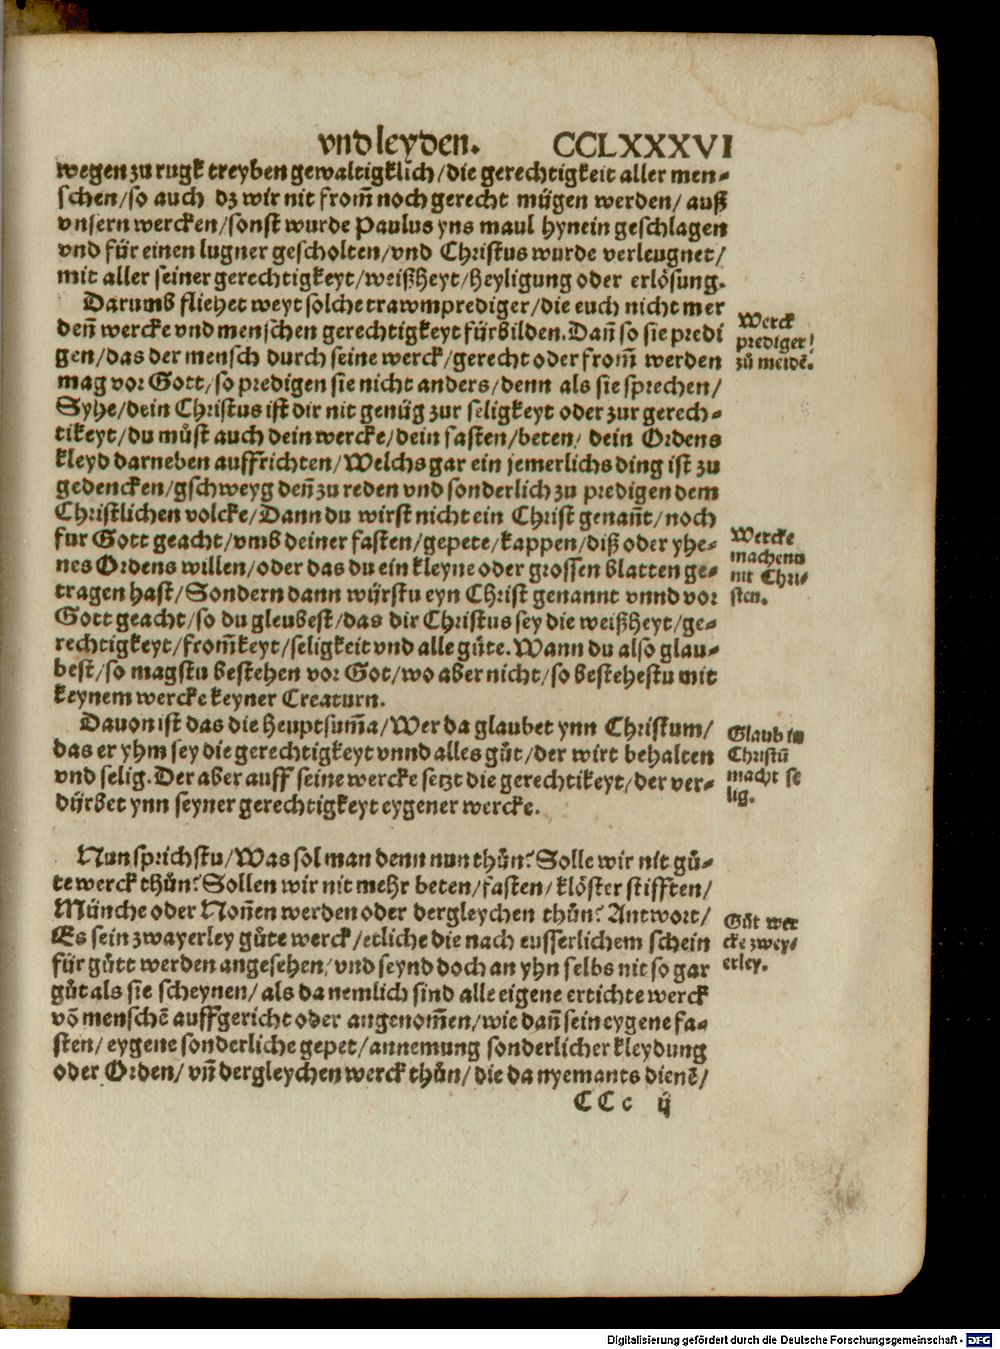 vnd leyden. CCLXXXVI
wegen zu rugk treyben gewaltigklich/die gerechtigkeit aller men-
schen/so auch dz wir nit from̄ noch gerecht mügen werden/ auß
vnsern wercken/sonst wurde Paulus yns maul hynein geschlagen
vnd für einen lugner gescholten/vnd Christus wurde verleugnet/
mit aller seiner gerechtigkeyt/weißheyt/heyligung oder erlösung.
Darumb fliehet weyt solche trawmprediger/die euch nicht mer
den̄ wercke vnd menschen gerechtigkeyt fürbilden. Dan̄ so sie predi
gen/das der mensch durch seine werck/gerecht oder from̄ werden
mag vor Gott/so predigen sie nicht anders/denn als sie sprechen/
Syhe/dein Christus ist dir nit genüg zur seligkeyt oder zur gerech-
tikeyt/du můst auch dein wercke/dein fasten/beten/ dein Ordens
kleyd darneben auffrichten/Welchs gar ein jemerlichs ding ist zu
gedencken/gschweyg den̄ zu reden vnd sonderlich zu predigen dem
Christlichen volcke/Dann du wirst nicht ein Christ genan̄t/noch
fur Gott geacht/vmb deiner fasten/gepete/kappen/diß oder yhe-
nes Ordens willen/oder das du ein kleyne oder grossen blatten ge-
tragen hast/Sondern dann würstu eyn Christ genannt vnnd vor
Gott geacht/so du gleubest/das dir Christus sey die weißheyt/ge-
rechtigkeyt/from̄keyt/seligkeit vnd alle gůte. Wann du also glau-
best/so magstu bestehen vor Got/wo aber nicht/so bestehestu mit
keynem wercke keyner Creaturn.
Dauon ist das die heuptsum̄a/Wer da glaubet ynn Christum/
das er yhm sey die gerechtigkeyt vnnd alles gůt/der wirt behalten
vnd selig. Der aber auff seine wercke setzt die gerechtikeyt/der ver-
dürbet ynn seyner gerechtigkeyt eygener wercke.
Nun sprichstu/Was sol man denn nun thůn? Solle wir nit gů-
te werck thůn? Sollen wir nit mehr beten/fasten/klöster stifften/
Münche oder Non̄en werden oder dergleychen thůn? Antwort/
Es sein zwayerley gůte werck/etliche die nach eusserlichem schein
für gůtt werden angesehen/vnd seynd doch an yhn selbs nit so gar
gůt als sie scheynen/als da nemlich sind alle eigene ertichte werck
võ menschẽ auffgericht oder angenom̄en/wie dan̄ sein eygene fa-
sten/eygene sonderliche gepet/annemung sonderlicher kleydung
oder Orden/vn̄ dergleychen werck thůn/die da nyemants dienẽ/
CCc ij
Werck
prediger/
zů meidẽ.
Wercke
machenn
nit Chri-
sten.
Glaub in
Christū
macht se
lig.
Gůt wer
cke zwey-
erley.
Digitalisierung gefördert durch die Deutsche Forschungsgemeinschaft - DFG